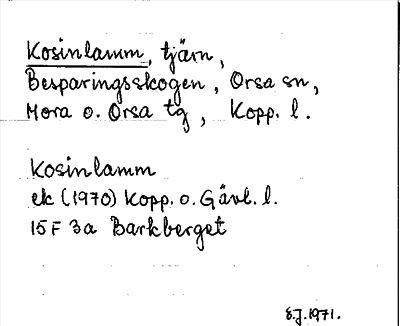 Kosinlamm, tjärn,
Besparingsskogen, Orsa sn,
Mora o. Orsa tg, Kopp. l.
Kosinlamm
ek (1970) Kopp. o. Gävl. l.
15F 3a Barkberget
S.J. 1971.